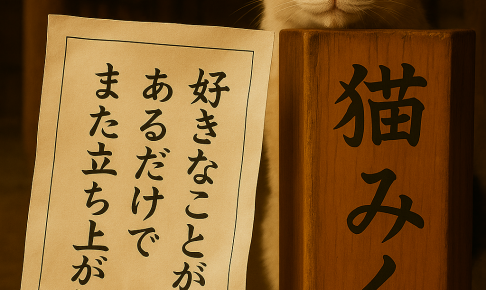 好きなことが
あるだけで
また立ち上が
猫み